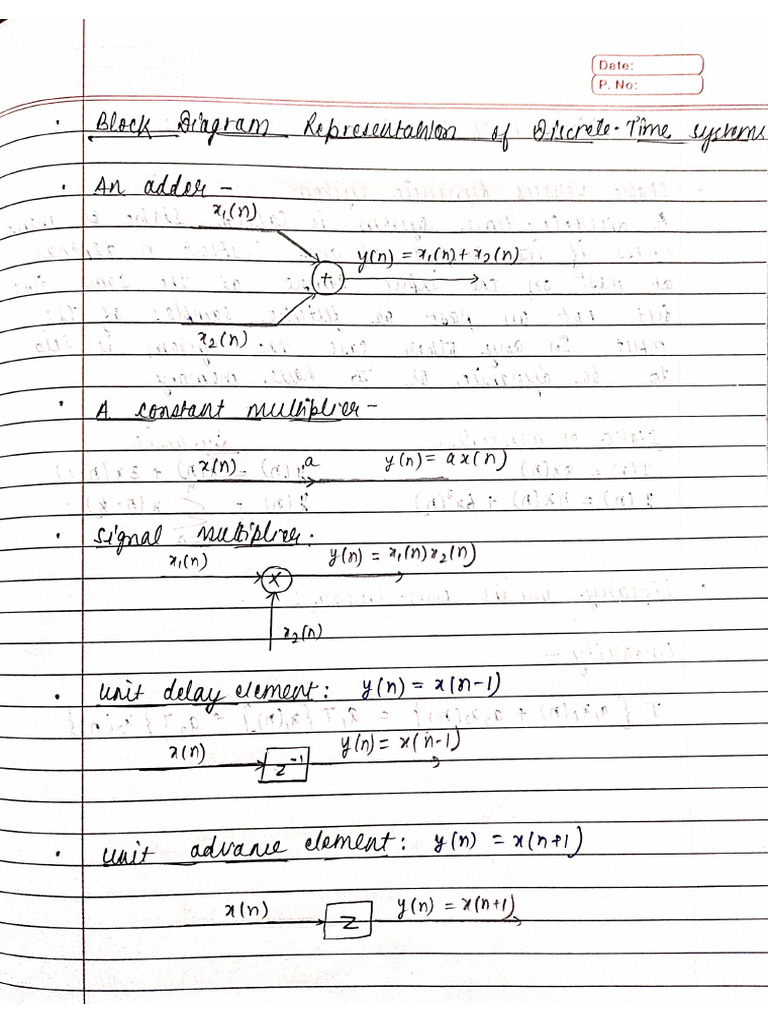 Date:
P. No:
· Block Diagram Representation of Discrete-Time systems
· An adder -
x₁(n)
y(n) = x₁(n) + x₂(n)
+
x₂(n).
· A constant multiplier -
x(n) a y(n) = a x(n)
· Signal multiplier.
x₁(n) y(n) = x₁(n) x₂(n)
×
x₂(n)
· Unit delay element: y(n) = x(n-1)
x(n) y(n) = x(n-1)
z⁻¹
· Unit advance element: y(n) = x(n+1)
x(n) y(n) = x(n+1)
z